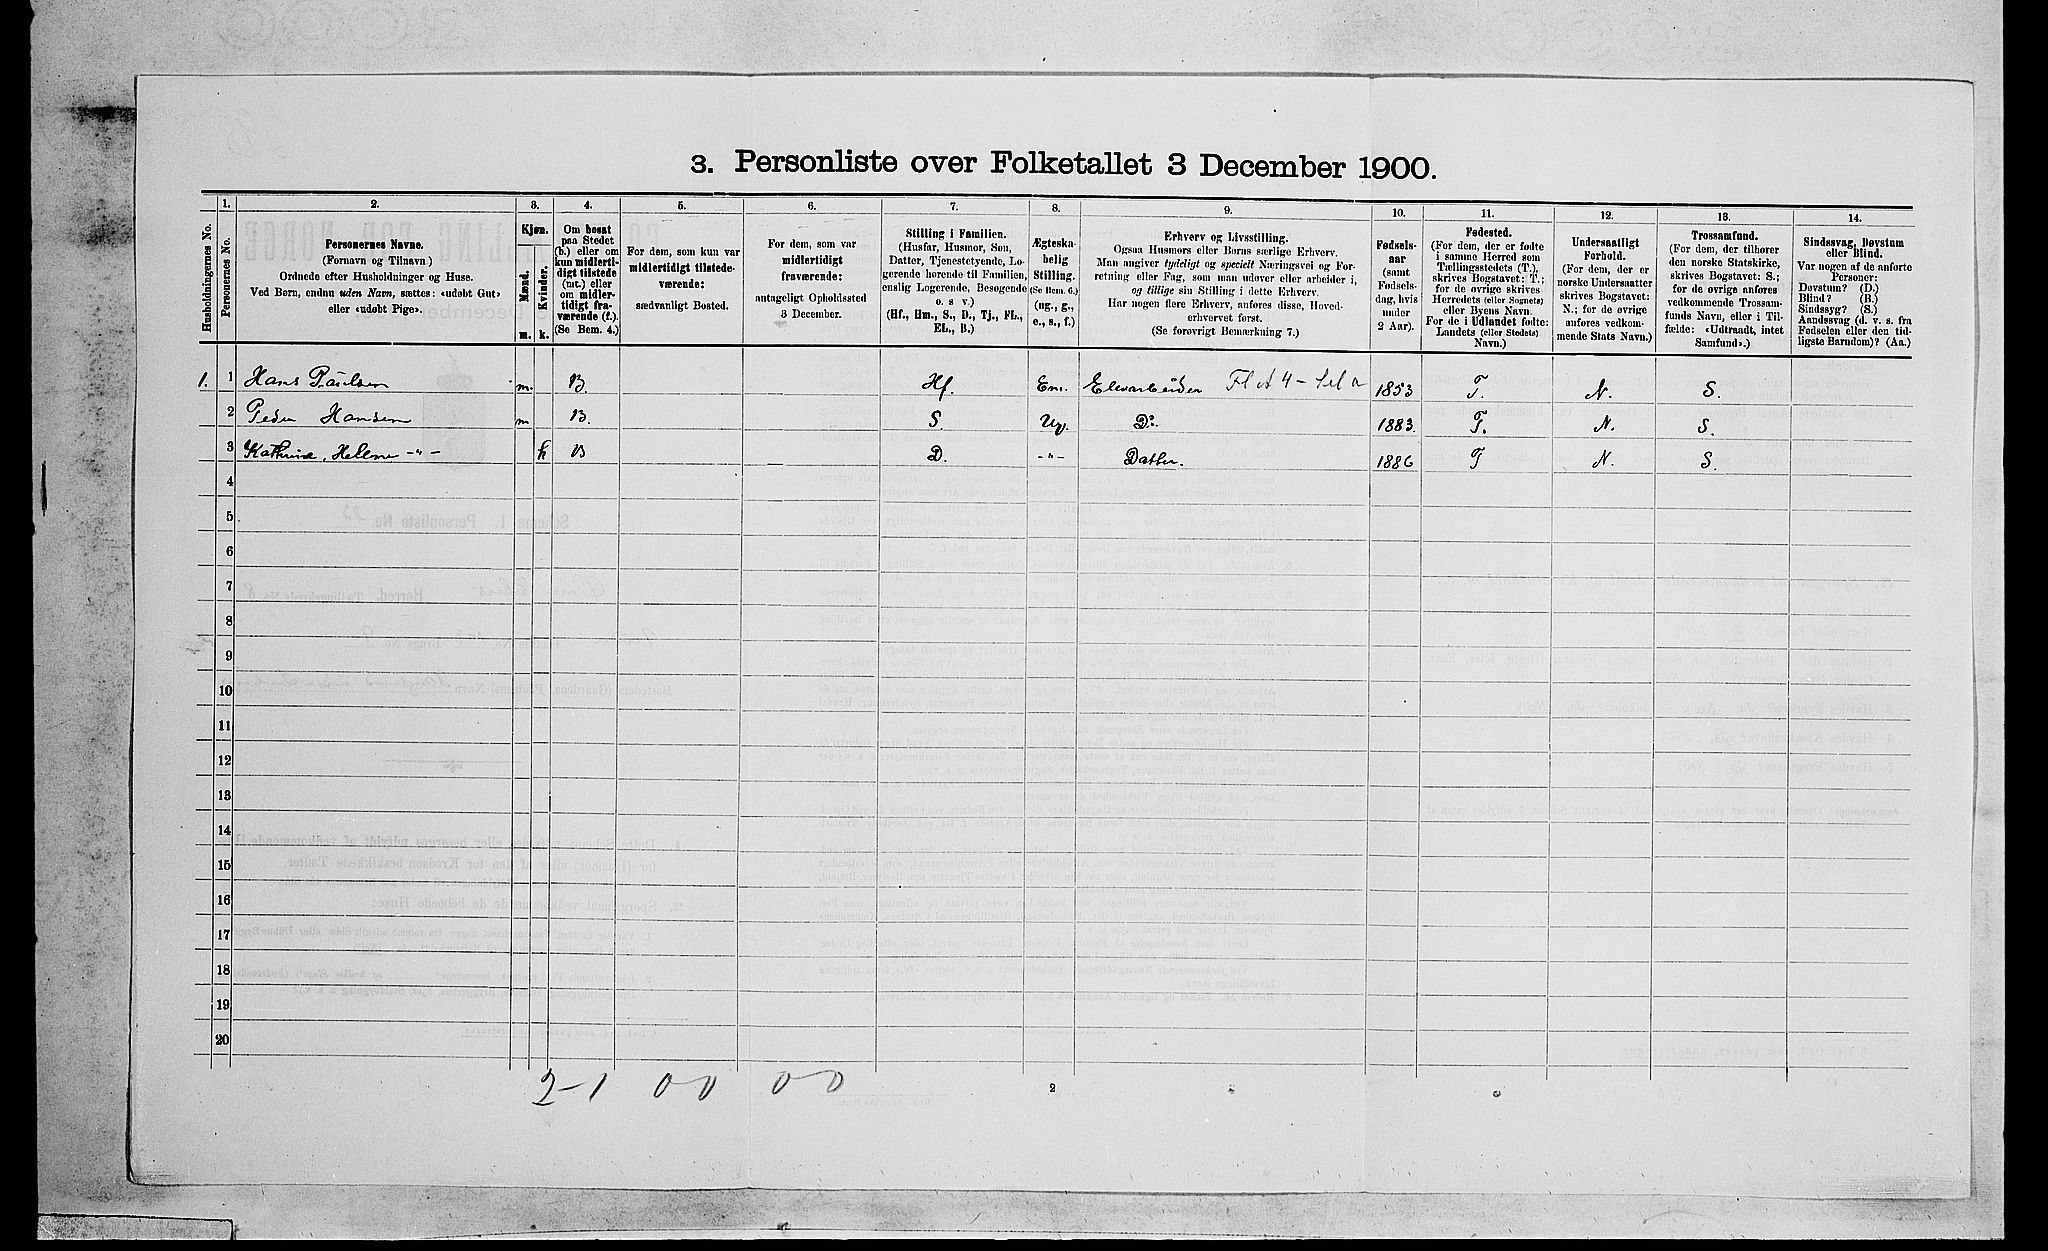 3. Personliste over Folketallet 3 December 1900.
1. 2. 3. 4. 5. 6. 7. 8. 9. 10. 11. 12. 13. 14.
Husholdningernes No.
Personernes No.
Personernes Navne.
(Fornavn og Tilnavn.)
Ordnede efter Husholdninger og Huse.
Ved Børn, endnu uden Navn, sættes: «udøbt Gut»
eller «udøbt Pige».
Kjøn.
Mænd.
Kvinder.
m. k.
Om bosat
paa Stedet
(b.) eller om
kun midlerti-
digt tilstede
(mt.) eller
om midler-
tidigt fra-
værende (f.).
(Se Bem. 4.)
For dem, som kun var
midlertidigt tilstede-
værende:
sædvanligt Bosted.
For dem, som var
midlertidigt
fraværende:
antageligt Opholdssted
3 December.
Stilling i Familien.
(Husfar, Husmor, Søn,
Datter, Tjenestetyende, Lo-
gerende hørende til Familien,
enslig Logerende, Besøgende
o. s v.)
(Hf., Hm., S., D., Tj., FL.,
EL., B.)
Ægteska-
belig
Stilling.
(Se Bem. 6.)
(ug., g.,
e., s., f.)
Erhverv og Livsstilling.
Ogsaa Husmors eller Børns særlige Erhverv.
Man angiver tydeligt og specielt Næringsvei og For-
retning eller Fag, som man udøver eller arbeider i,
og tillige sin Stilling i dette Erhverv.
Har nogen flere Erhverv, anføres disse, Hoved-
erhvervet først.
(Se forøvrigt Bemærkning 7.)
Fødsels-
aar
(samt
Fødsels-
dag, hvis
under
2 Aar).
Fødested.
(For dem, der er fødte
i samme Herred som
Tællingsstedets (T.),
skrives Bogstavet: T.;
for de øvrige skrives
Herredets (eller Sognets)
eller Byens Navn.
For de i Udlandet fødte:
Landets (eller Stedets)
Navn.)
Undersaatligt
Forhold.
(For dem, der er
norske Undersaatter
skrives Bogstavet:
N.; for de øvrige
anføres vedkom-
mende Stats Navn.)
Trossamfund.
(For dem, der tilhører
den norske Statskirke,
skrives Bogstavet: S.;
for de øvrige anføres
vedkommende Trossam-
funds Navn, eller i Til-
fælde: «Udtraadt, intet
Samfund».)
Sindssvag, Døvstum
eller Blind.
Var nogen af de anførte
Personer:
Døvstum? (D.)
Blind? (B.)
Sindssyg? (S.)
Aandssvag (d. v. s. fra
Fødselen eller den tid-
ligste Barndom)? (Aa.)
1. 1 Hans Paulsen m. B. Hf. Em. Elevarbeider Fl A 4 - 1853 T. N. S.
2 Peder Hansen m B. S. Ug. Do. 1883. T. N. S.
3 Kathrine, Helene -"- k B D. -"- Datter. 1886 T N. S.
4
5
6
7
8
9
10
11
12
13
14
15
16
17
18
19
20
2-1 0-0 0-0
2